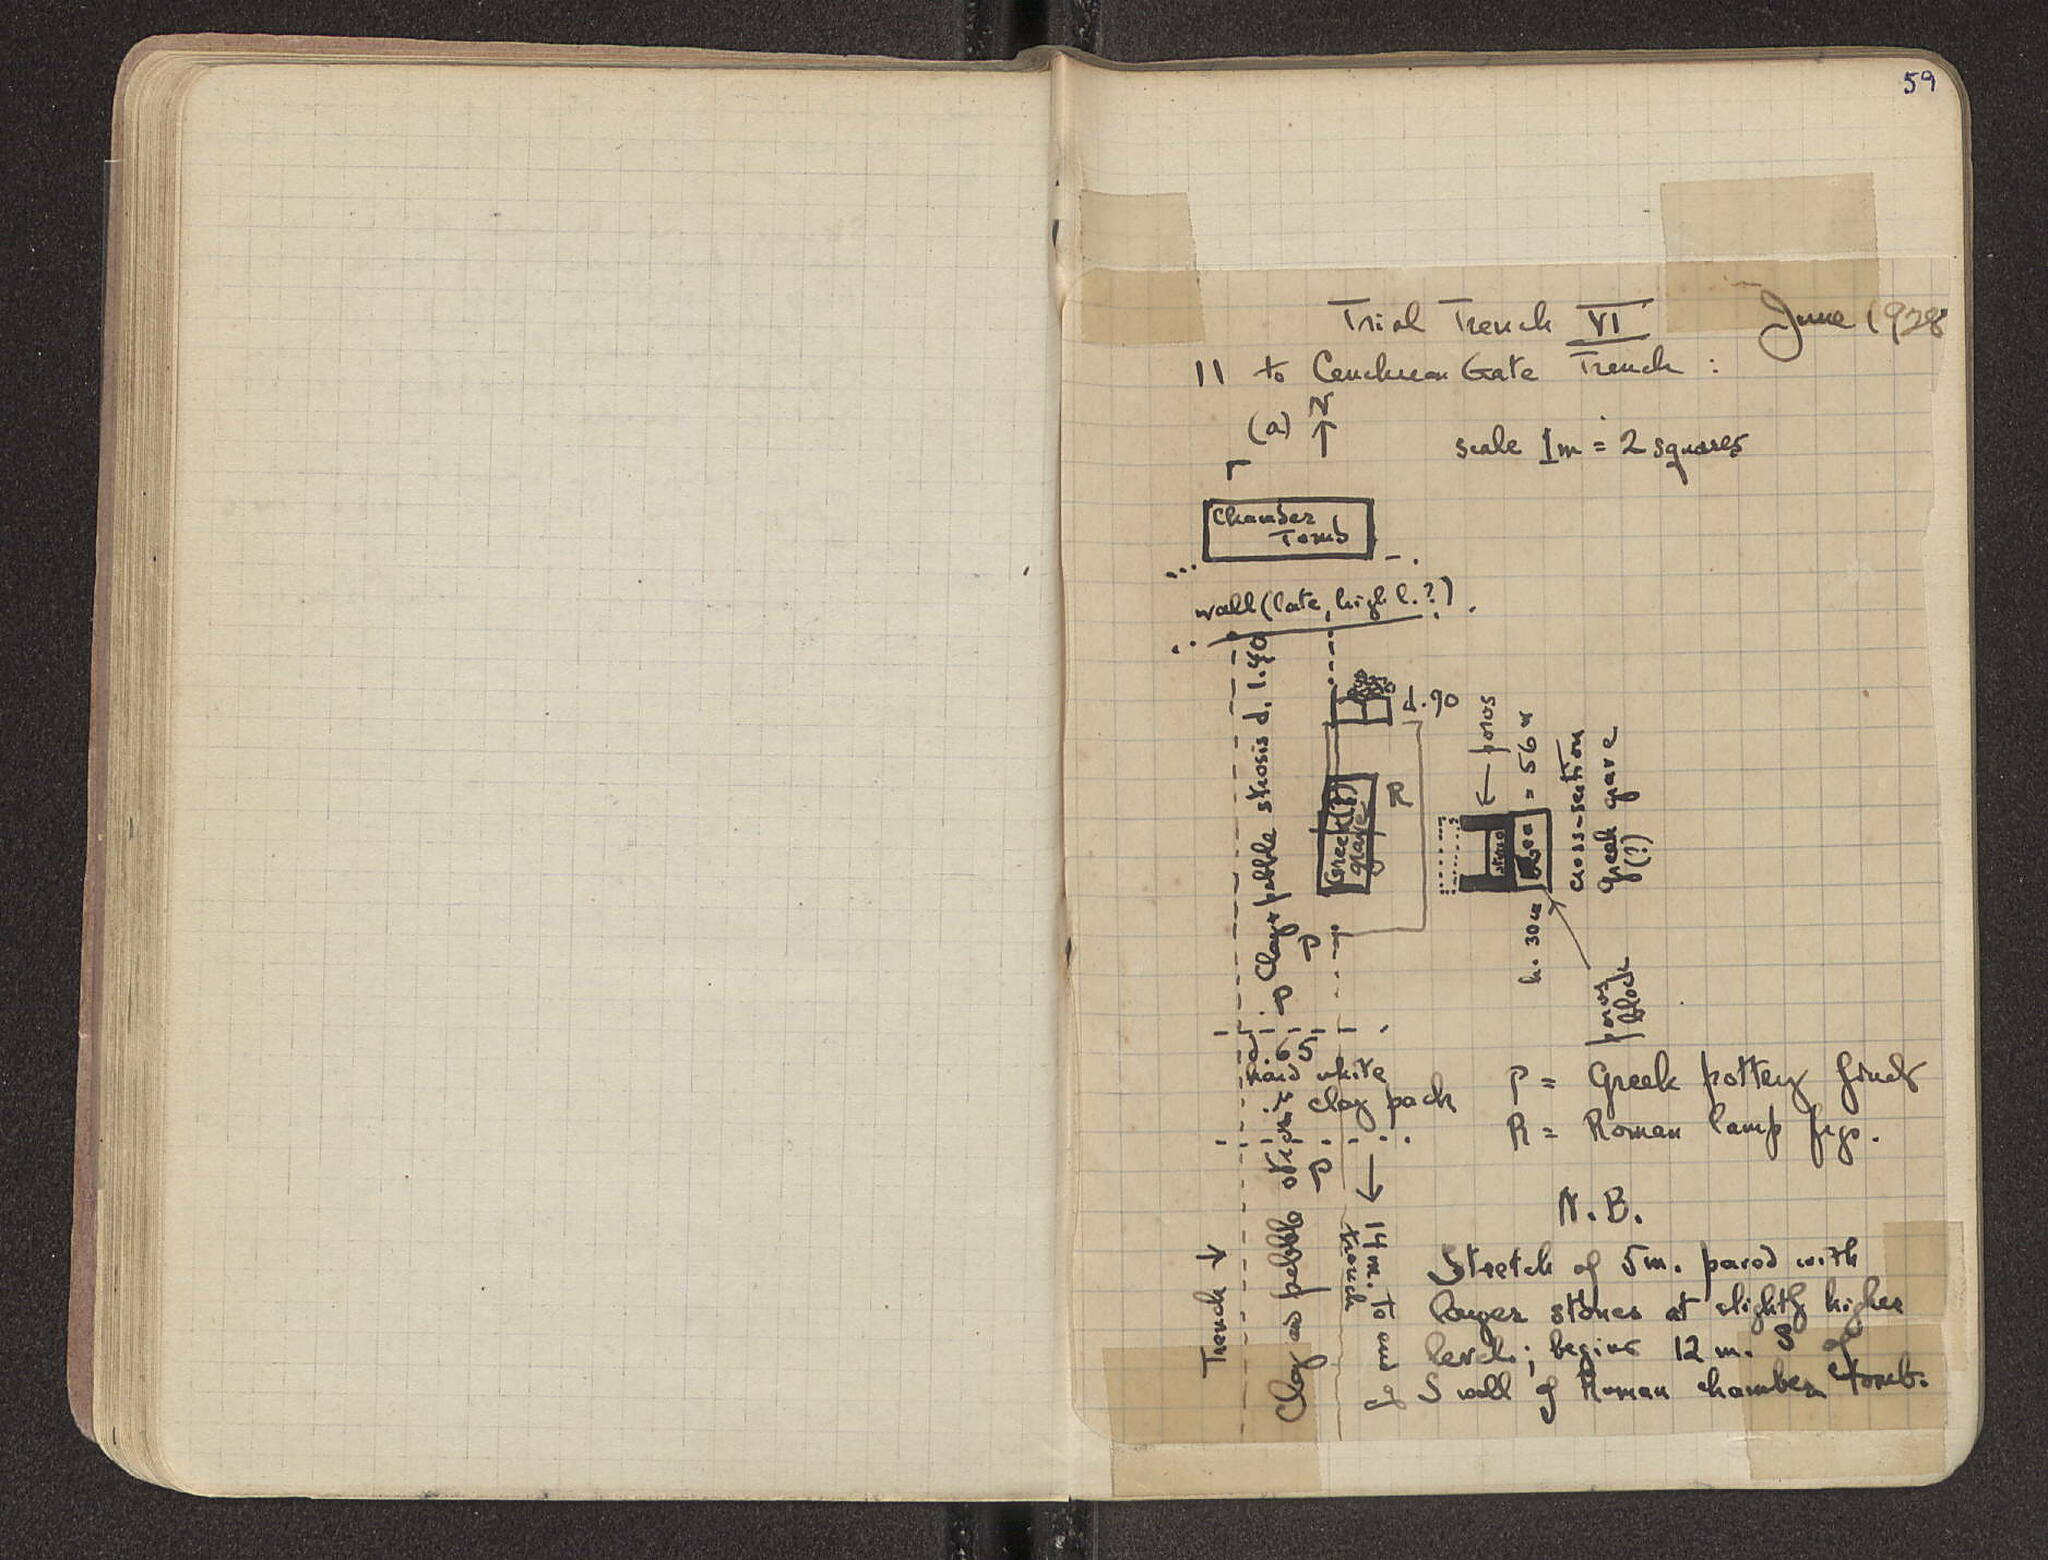 59
Trial Trench VI June 1928
|| to Cenchrean Gate Trench :
(a) N
scale 1m = 2 squares
Chamber
Tomb
wall (late, high l.?)
d. 90
Clay + pebble strosis d. 1.40
Greek(?)
grave
R
← poros
= 56
h. 30
cross-section
Greek grave
(?)
poros
block
P
P
d. 65
hard white
clay pack
P = Greek pottery finds
R = Roman lamp frgs.
P
Trench →
Clay and pebble strosis
14 m. to end of
trench
N.B.
Stretch of 5m. paved with
larger stones at slightly higher
level; begins 12 m. S of
S wall of Roman chamber tomb.